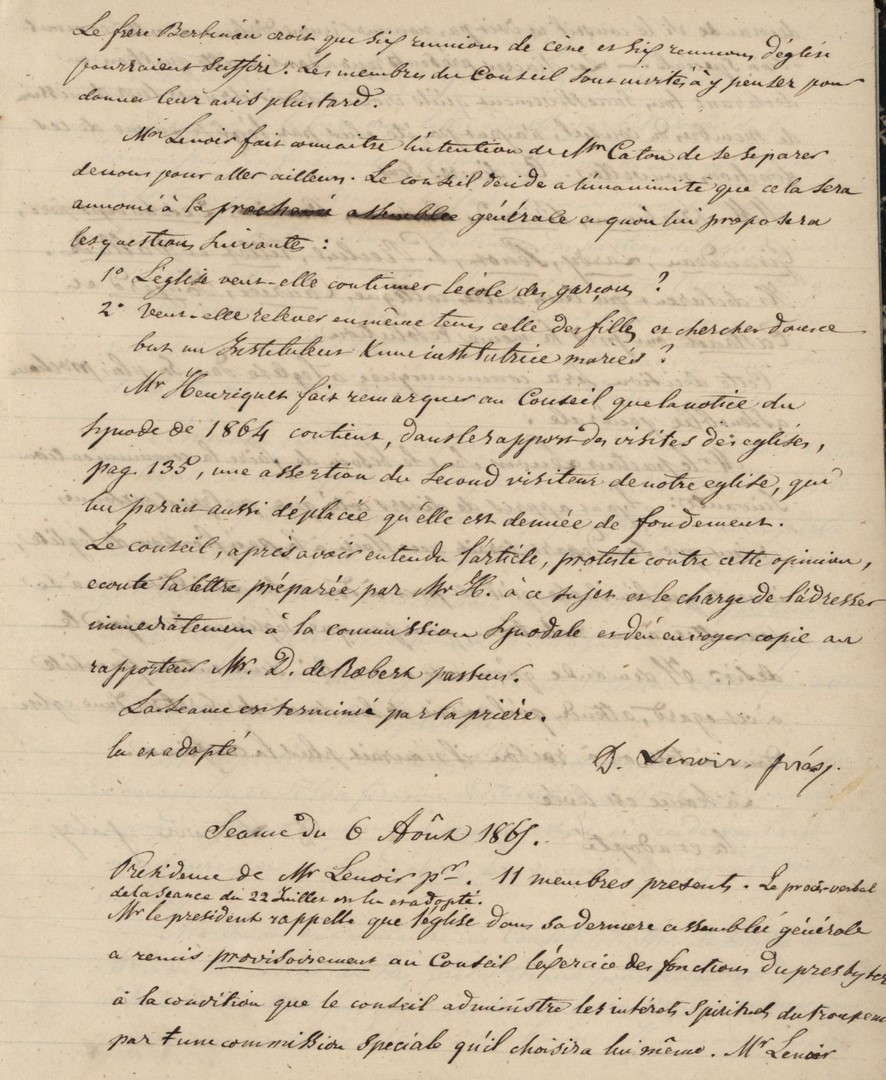 Le frère Berbinau croit que six reunions de cène et six reunions d'église
pourraient suffire. Les membres du Conseil sont invités à y penser pour
donner leur avis plus tard.
Mr Lenoir fait connaitre l'intention de Mr Caton de se separer
de nous pour aller ailleurs. Le conseil decide a l'unanimité que cela sera
annoncé à la prochaine assemblée générale et qu'on lui proposera
les questions suivantes :
1° L'église veut-elle continuer l'école des garçons ?
2° Veut-elle relever en même tems celle des filles et chercher dans ce
but un Instituteur & une institutrice mariés ?
Mr Henriquet fait remarquer au Conseil que la notice du
Synode de 1864 contient, dans le rapport des visites des eglises,
pag. 135, une assertion du Second visiteur de notre eglise, qui
lui parait aussi déplacée qu'elle est denuée de fondement.
Le conseil, après avoir entendu l'article, proteste contre cette opinion,
ecoute la lettre préparée par Mr H. à ce sujet et le charge de l'adresser
immediatement à la commission Synodale et d'en envoyer copie au
rapporteur Mr. D. de Robert pasteur.
La Seance est terminée par la prière.
lu et adopté
D. Lenoir. prés.
Seance du 6 Août 1865.
Présidence de Mr Lenoir pr. 11 membres presents. Le procès-verbal
de la Séance du 22 Juillet est lu et adopté.
Mr le president rappelle que l'église dans sa derniere assemblée générale
a remis provisoirement au Conseil l'éxercice des fonctions du presbyter
à la condition que le conseil administre les intérets Spirituels du troupeau
par une commission speciale qu'il choisira lui même. Mr Lenoir